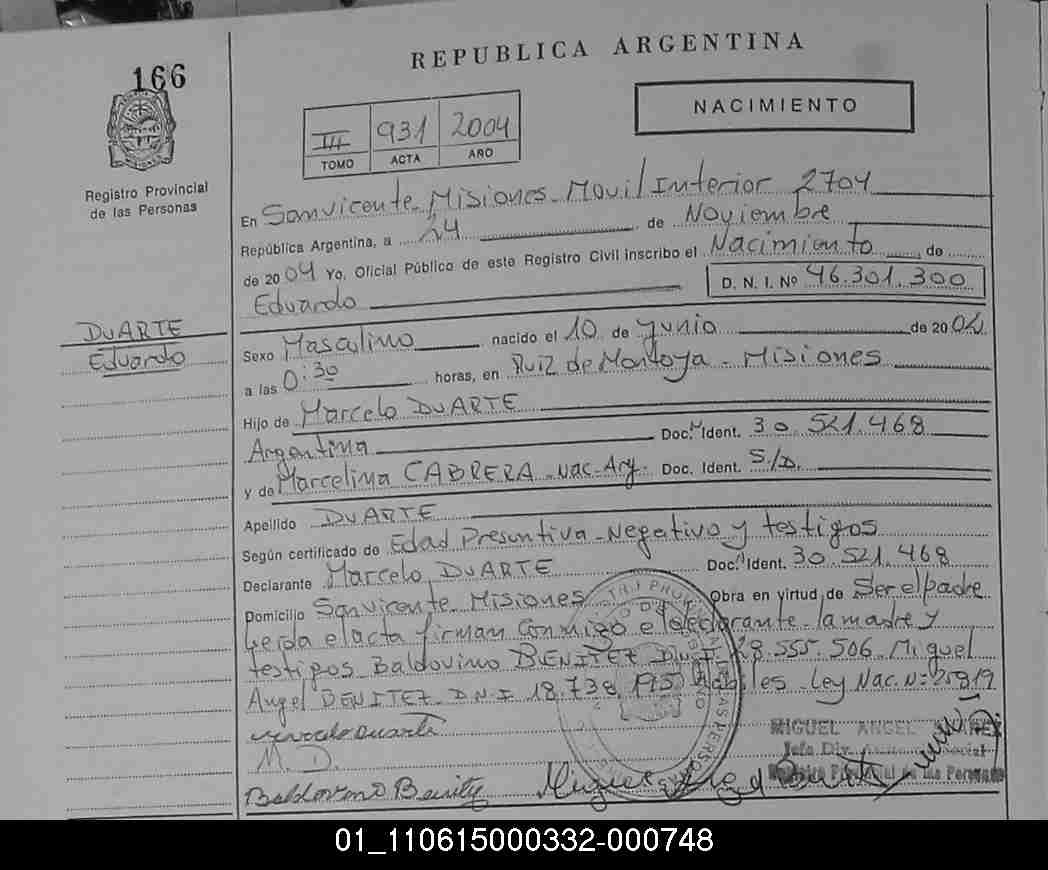 REPUBLICA ARGENTINA
166
NACIMIENTO
III 931 2004
TOMO ACTA AÑO
Registro Provincial
de las Personas
En Sanvicente Misiones Movil Interior 2704
República Argentina, a 24 de Noviembre
de 2004 Yo, Oficial Público de este Registro Civil inscribo el Nacimiento de
Eduardo D. N. I. Nº 46.301.300
DUARTE
Eduardo
Sexo Masculino nacido el 10 de Junio de 2004
a las 0:30 horas, en Ruiz de Montoya - Misiones
Hijo de Marcelo DUARTE
Argentina Doc. Ident. 30.521.468
y de Marcelina CABRERA - Nac. Arg. Doc. Ident. S/D.
Apellido DUARTE
Según certificado de Edad Presuntiva - Negativo y testigos
Declarante Marcelo DUARTE Doc. Ident. 30.521.468
Domicilio Sanvicente Misiones Obra en virtud de Ser el padre
Leida el acta firman conmigo el declarante - la madre y
testigos Baldovino BENITEZ D.N.I. 28.555.506 Miguel
Angel BENITEZ D.N.I. 18.738.195 habiles - Ley Nac. Nº 25819
Marcelo Duarte
MIGUEL ANGEL
M. D.
Jefe Div.
Registro Provincial de las Personas
Baldovino Benitez
01_110615000332-000748